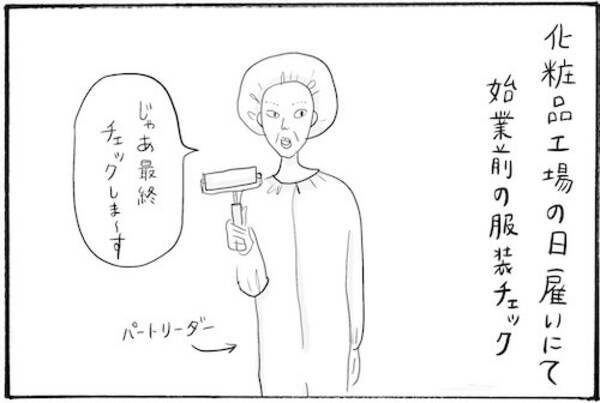 化粧品工場の日雇いにて
始業前の服装チェック
じゃあ最終
チェックしま〜す
パートリーダー